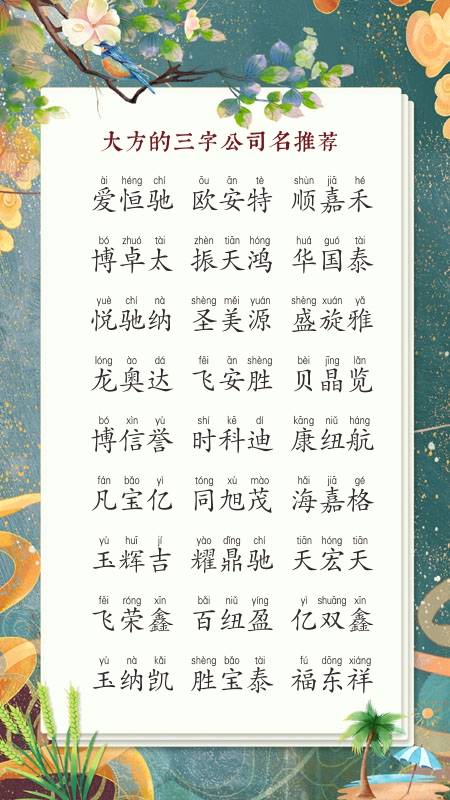 大方的三字公司名推荐
ài héng chí ōu ān tè shùn jiā hé
爱恒驰 欧安特 顺嘉禾
bó zhuó tài zhèn tiān hóng huá guó tài
博卓太 振天鸿 华国泰
yuè chí nà shèng měi yuán shèng xuán yǎ
悦驰纳 圣美源 盛旋雅
lóng ào dá fēi ān shèng bèi jīng lǎn
龙奥达 飞安胜 贝晶览
bó xìn yù shí kē dí kāng niǔ háng
博信誉 时科迪 康纽航
fán bǎo yì tóng xù mào hǎi jiā gé
凡宝亿 同旭茂 海嘉格
yù huī jí yào dǐng chí tiān hóng tiān
玉辉吉 耀鼎驰 天宏天
fēi róng xīn bǎi niǔ yíng yì shuāng xīn
飞荣鑫 百纽盈 亿双鑫
yù nà kǎi shèng bǎo tài fú dōng xiáng
玉纳凯 胜宝泰 福东祥